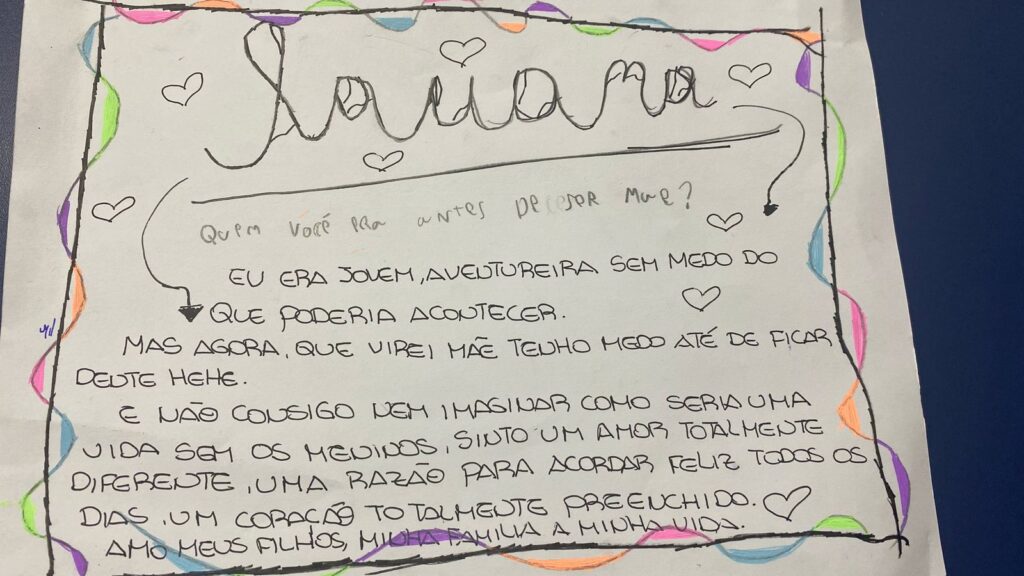 Sauana
Quem você era antes de ser mãe?
EU ERA JOVEM, AVENTUREIRA SEM MEDO DO
QUE PODERIA ACONTECER.
MAS AGORA, QUE VIREI MÃE TENHO MEDO ATÉ DE FICAR
DENTE HEHE.
E NÃO CONSIGO NEM IMAGINAR COMO SERIA UMA
VIDA SEM OS MENINOS, SINTO UM AMOR TOTALMENTE
DIFERENTE, UMA RAZÃO PARA ACORDAR FELIZ TODOS OS
DIAS, UM CORAÇÃO TOTALMENTE PREENCHIDO.
AMO MEUS FILHOS, MINHA FAMILIA A MINHA VIDA.